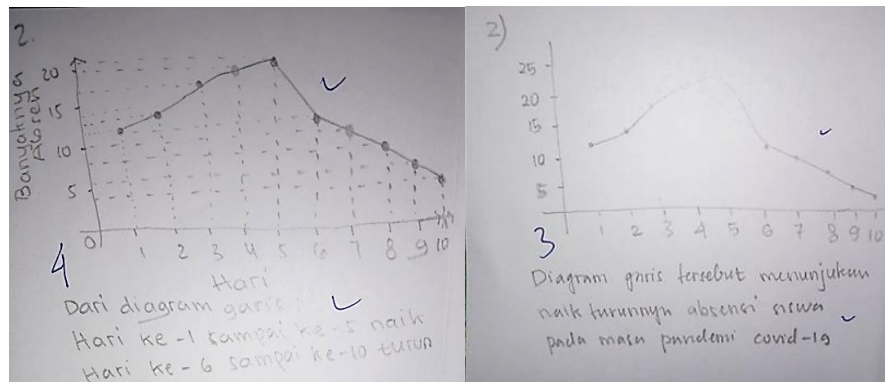 2.
Banyaknya
Absen
20
15
10
5
0 1 2 3 4 5 6 7 8 9 10
Hari
4
Dari diagram garis :
Hari ke-1 sampai ke-5 naik
Hari ke-6 sampai ke-10 turun
2)
25
20
15
10
5
1 2 3 4 5 6 7 8 9 10
3
Diagram garis tersebut menunjukan
naik turunnya absensi siswa
pada masa pandemi covid-19